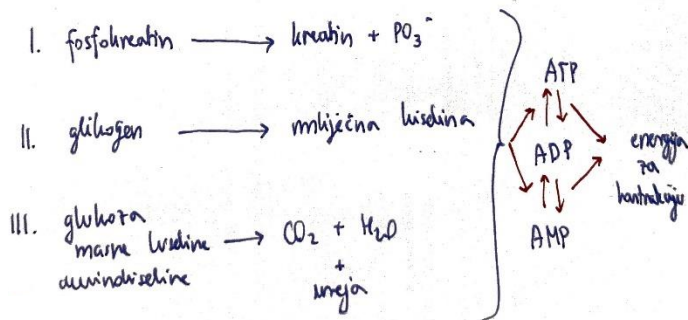 I. fosfokreatin → kreatin + PO₃⁻
II. glikogen → mliječna kiselina
III. glukoza
masne kiseline → CO₂ + H₂O
aminokiseline
+
ureja
ATP
ADP
AMP
energija
za
kontrakciju